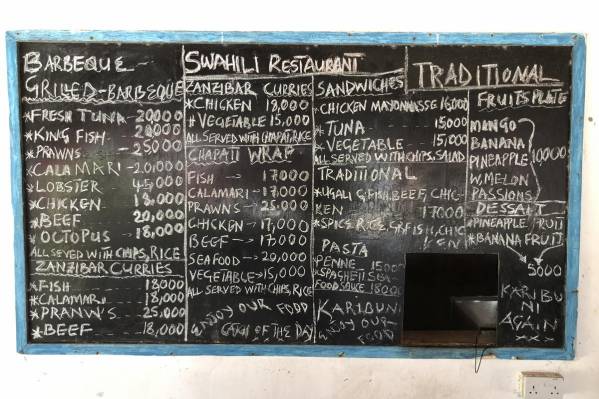 BARBEQUE
GRILLED-BARBEQUE
*FRESH TUNA 20000
*KING FISH 20000
*PRAWNS 25000
*CALAMARI 20,000
*LOBSTER 45,000
*CHICKEN 18,000
*BEEF 20,000
*OCTOPUS 18,000
ALL SEVED WITH CHIPS, RICE
ZANZIBAR CURRIES
*FISH 18000
*CALAMARI 18,000
*PRAWN'S 25.000
*BEEF 18,000
SWAHILI RESTAURANT
ZANZIBAR CURRIES
*CHICKEN 18,000
*VEGETABLE 15,000
ALL SERVED WITH CHAPATI, RICE
CHAPATI WRAP
FISH 17000
CALAMARI 17,000
PRAWN'S 25.000
CHICKEN 17,000
BEEF 17,000
SEA FOOD 20,000
VEGETABLE 15,000
ALL SERVED WITH CHIPS, RICE
ENJOY OUR FOOD
CATCH OF THE DAY
SANDWICHES
CHICKEN MAYONNASSE 16,000
*TUNA 15,000
*VEGETABLE 15,000
ALL SERVED WITH CHIPS, SALAD
TRADITIONAL
*UGALI G.FISH, BEEF, CHIC-
KEN 17000
*SPICE RICE, GR.FISH, CHIC
KEN
PASTA
PENNE 15000
*SPAGHETI SEA
FOOD SAUCE 18000
KARIBUNI
ENJOY OUR
FOOD
TRADITIONAL
FRUITS PLATE
MANGO
BANANA
PINEAPPLE 10,000
W.MELON
PASSIONS
DESSAIT
*PINEAPPLE FRUIT
*BANANA FRUIT
5000
KARIBU
NI
AGAIN
xxx